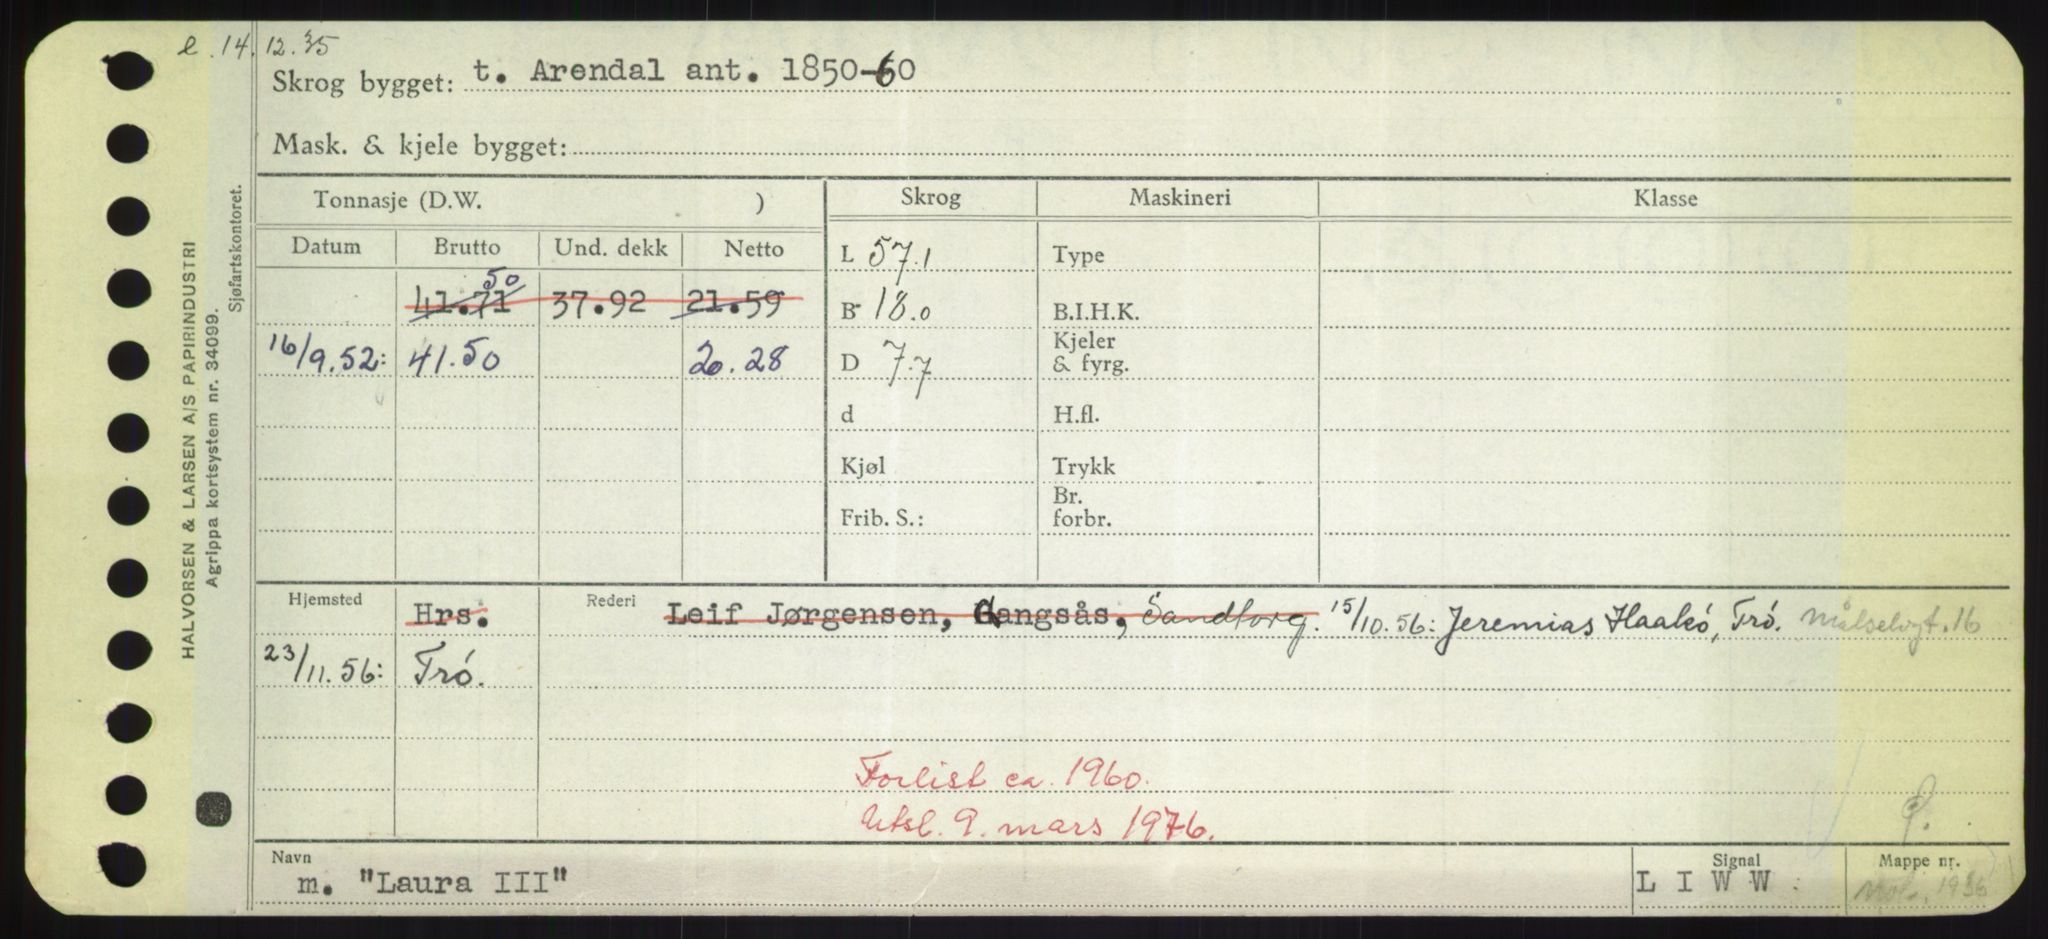 e. 14.12.35
Skrog bygget: t. Arendal ant. 1850-60
Mask. & kjele bygget:
HALVORSEN & LARSEN A/S PAPIRINDUSTRI
Agrippa kortsystem nr. 34099.
Sjøfartskontoret.
Tonnasje (D.W. ) Skrog Maskineri Klasse
Datum Brutto Und. dekk Netto
L 57.1 Type
50
41.71 37.92 21.59 B 18.0 B.I.H.K.
16/9.52: 41.50 20.28 D 7.7 Kjeler & fyrg.
d H.fl.
Kjøl Trykk
Frib. S.: Br. forbr.
Hjemsted Hrs. Rederi Leif Jørgensen, Gangsås, Sandtorg. 15/10.56: Jeremias Haakó, Tró. Målselvgt. 16
23/11.56: Tró.
Forlist ca. 1960.
Utsl. 9. mars 1976.
Navn Signal Mappe nr.
m. "Laura III" L I W W 1936